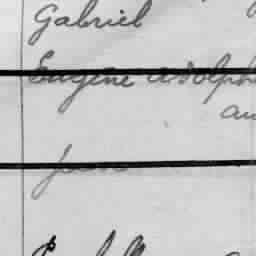 Gabriel
Eugène Adolphe
au
Jean